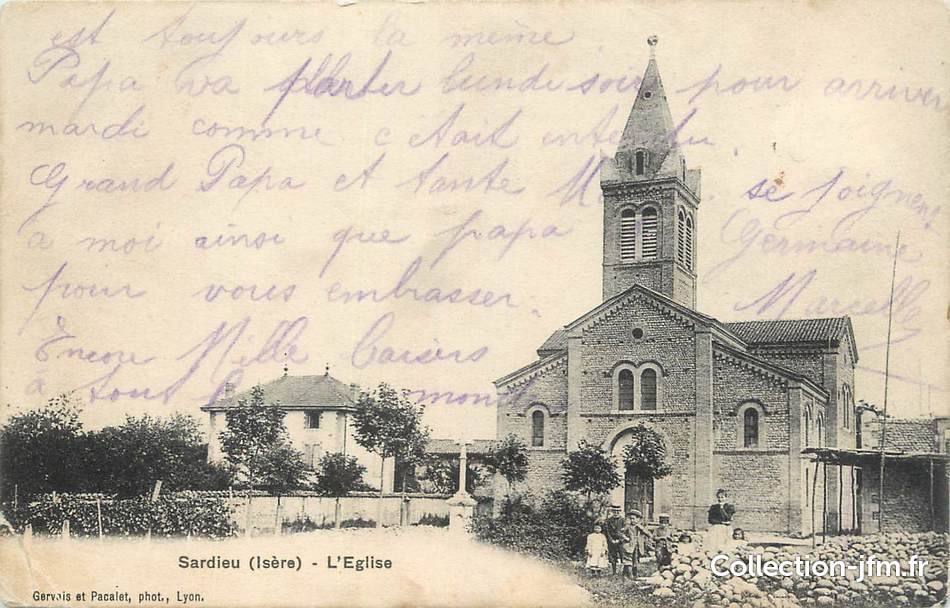 est toujours la même
Papa va parler lundi soir pour arriver
mardi comme c etait entendu.
Grand Papa et tante se joignent
à moi ainsi que papa Germaine
pour vous embrasser. Marcelle
Encore Mille baisers
à tout monde
Sardieu (Isère) - L'Eglise
Gervais et Pacalet, phot., Lyon.
Collection-jfm.fr